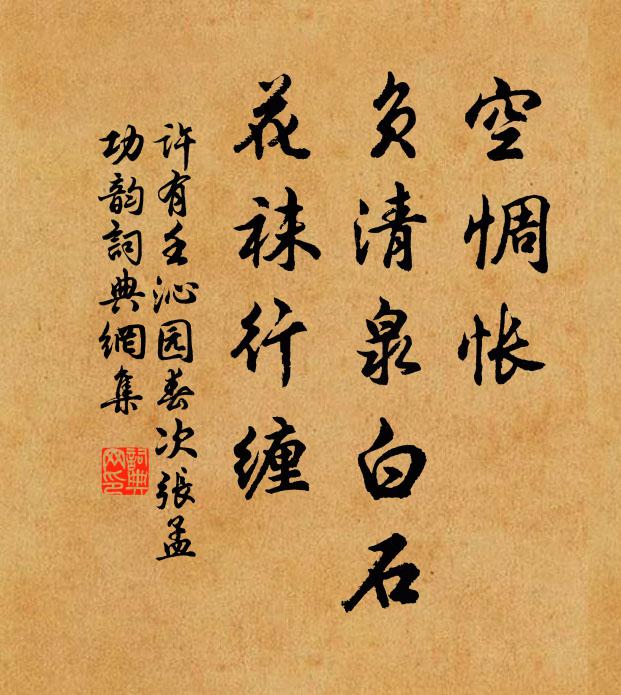 空惆怅
负清泉白石
花袜行缠
许有壬沁园春次張孟
功韵詞典網集
詞典網印